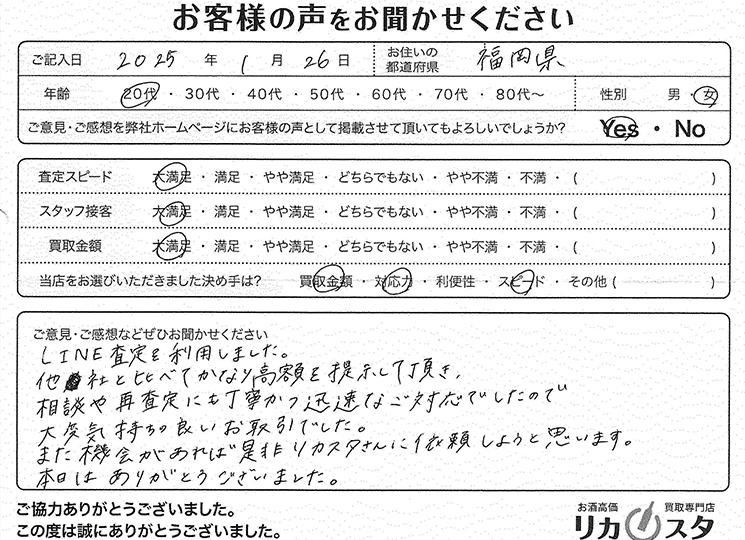 お客様の声をお聞かせください
ご記入日 2025 年 1 月 26 日 お住いの都道府県 福岡県
年齢 20代 ・ 30代 ・ 40代 ・ 50代 ・ 60代 ・ 70代 ・ 80代〜 性別 男 ・ 女
ご意見・ご感想を弊社ホームページにお客様の声として掲載させて頂いてもよろしいでしょうか? Yes ・ No
査定スピード 大満足 ・ 満足 ・ やや満足 ・ どちらでもない ・ やや不満 ・ 不満 ・ ( )
スタッフ接客 大満足 ・ 満足 ・ やや満足 ・ どちらでもない ・ やや不満 ・ 不満 ・ ( )
買取金額 大満足 ・ 満足 ・ やや満足 ・ どちらでもない ・ やや不満 ・ 不満 ・ ( )
当店をお選びいただきました決め手は? 買取金額 ・ 対応力 ・ 利便性 ・ スピード ・ その他 ( )
ご意見・ご感想などぜひお聞かせください
LINE査定を利用しました。
他社と比べてかなり高額を提示して頂き、
相談や再査定にも丁寧かつ迅速なご対応でしたので
大変気持ちの良いお取引でした。
また機会があれば是非リカスタさんに依頼しようと思います。
本日はありがとうございました。
ご協力ありがとうございました。
この度は誠にありがとうございました。
お酒高価 買取専門店
リカスタ